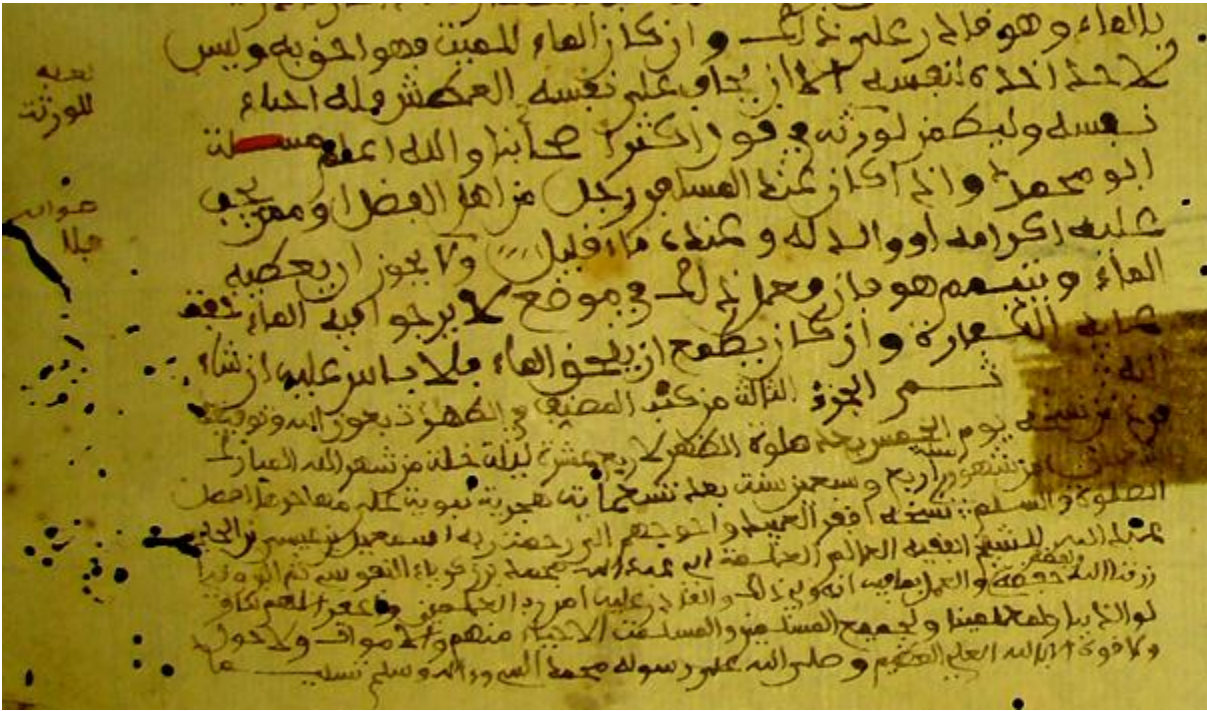 بالماء وهو قادر على ذلك وان كان الماء للميت فهو احق به وليس
لاحد اخذه لنفسه الا ان يخاف على نفسه العطش فله احياء
لعله
للورثة
نفسه وليكن لورثته في قول اكثر اصحابنا والله اعلم مسئلة
ابو محمد واذا كان عند المسافر رجل من اهل الفضل او ممن يجب
صوابه
فلا
عليه اكرامه او والد له وعنده ماء قليل ولا يجوز ان يعطيه
الماء ويتيمم هو فان فعل ذلك في موضع لا يرجو فيه الماء
الكفارة وان كان يطمع ان يلحق الماء فلا باس عليه ان شاء
الله
تم الجزء الثالث من كتب المصنف في الطهر بعون الله وتوفيقه
من نسخه يوم الخميس بعد صلوة الظهر لاربع عشرة ليلة خلت من شهر الله المبارك
من شهور سنة اربع وسبعين سنة بعد تسعمائة هجرية نبوية على مهاجرها افضل
الصلوة والسلم نسخه افقر العبيد واحوجهم الى رحمة ربه بن عيسى بن
عبد الله للشيخ الفقيه العالم ابي عبد الله محمد بن زكرياء النفوسي ثم
رزقنا الله حفظه وفهمه والعمل بما فيه انه ولي ذلك والقادر عليه امين رب العلمين واغفر اللهم
لوالدينا ولجميع المسلمين والمسلمت الاحياء منهم والاموات ولا حول
ولا قوة الا بالله العلي العظيم وصلى الله على رسوله محمد النبي واله وسلم تسليما